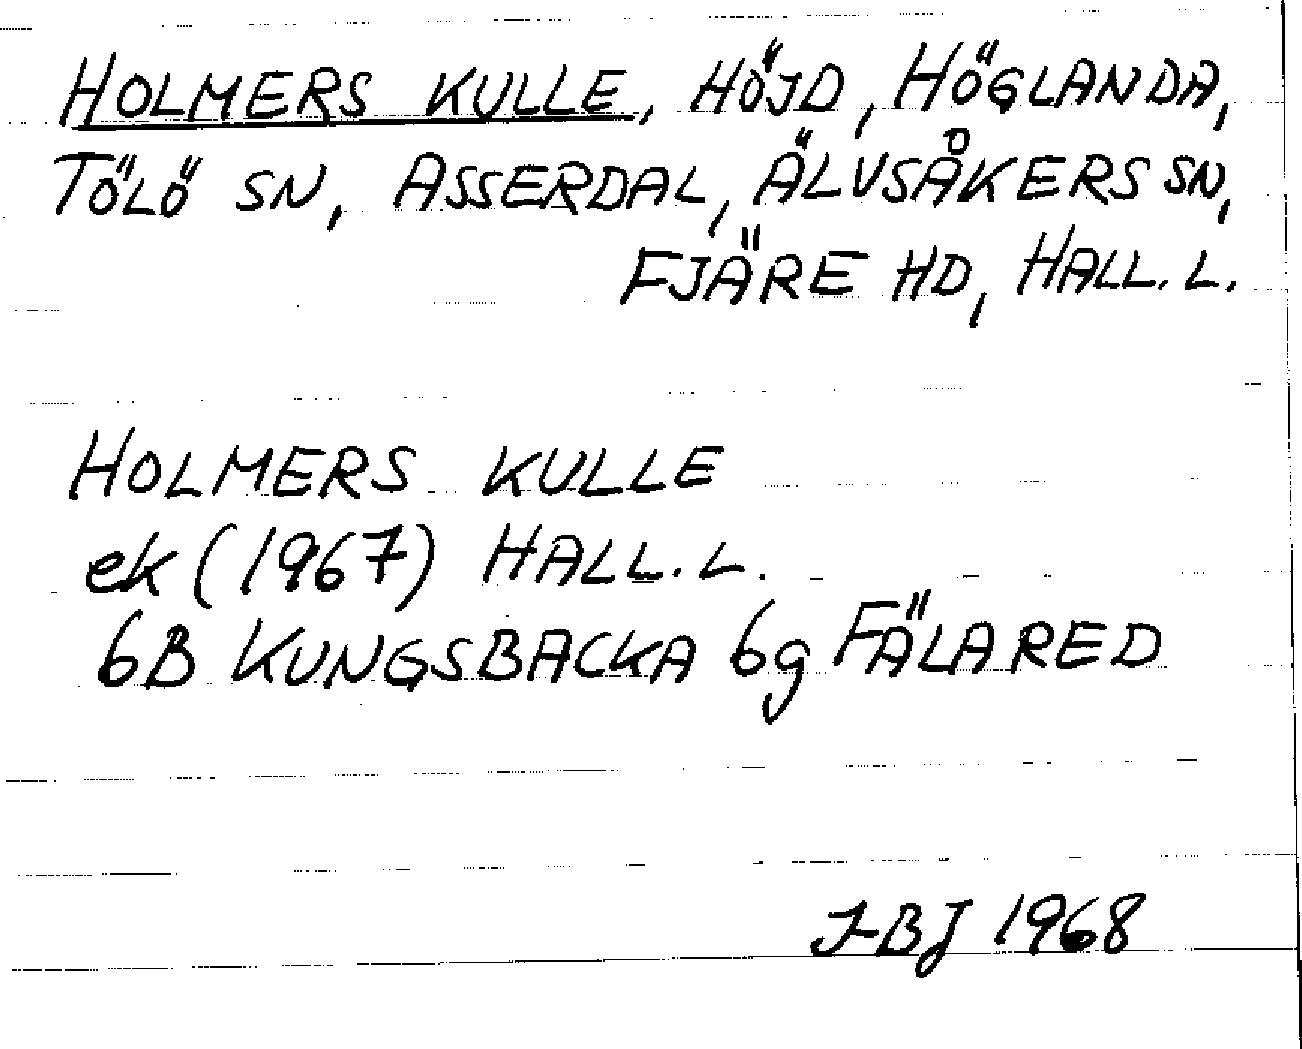 HOLMERS KULLE, HÖJD, HÖGLANDA,
TÖLÖ SN, ASSERDAL, ÄLVSÅKERS SN,
FJÄRE HD, HALL. L.
HOLMERS KULLE
ek (1967) HALL. L.
6B KUNGSBACKA 6g FÄLARED
IBJ 1968